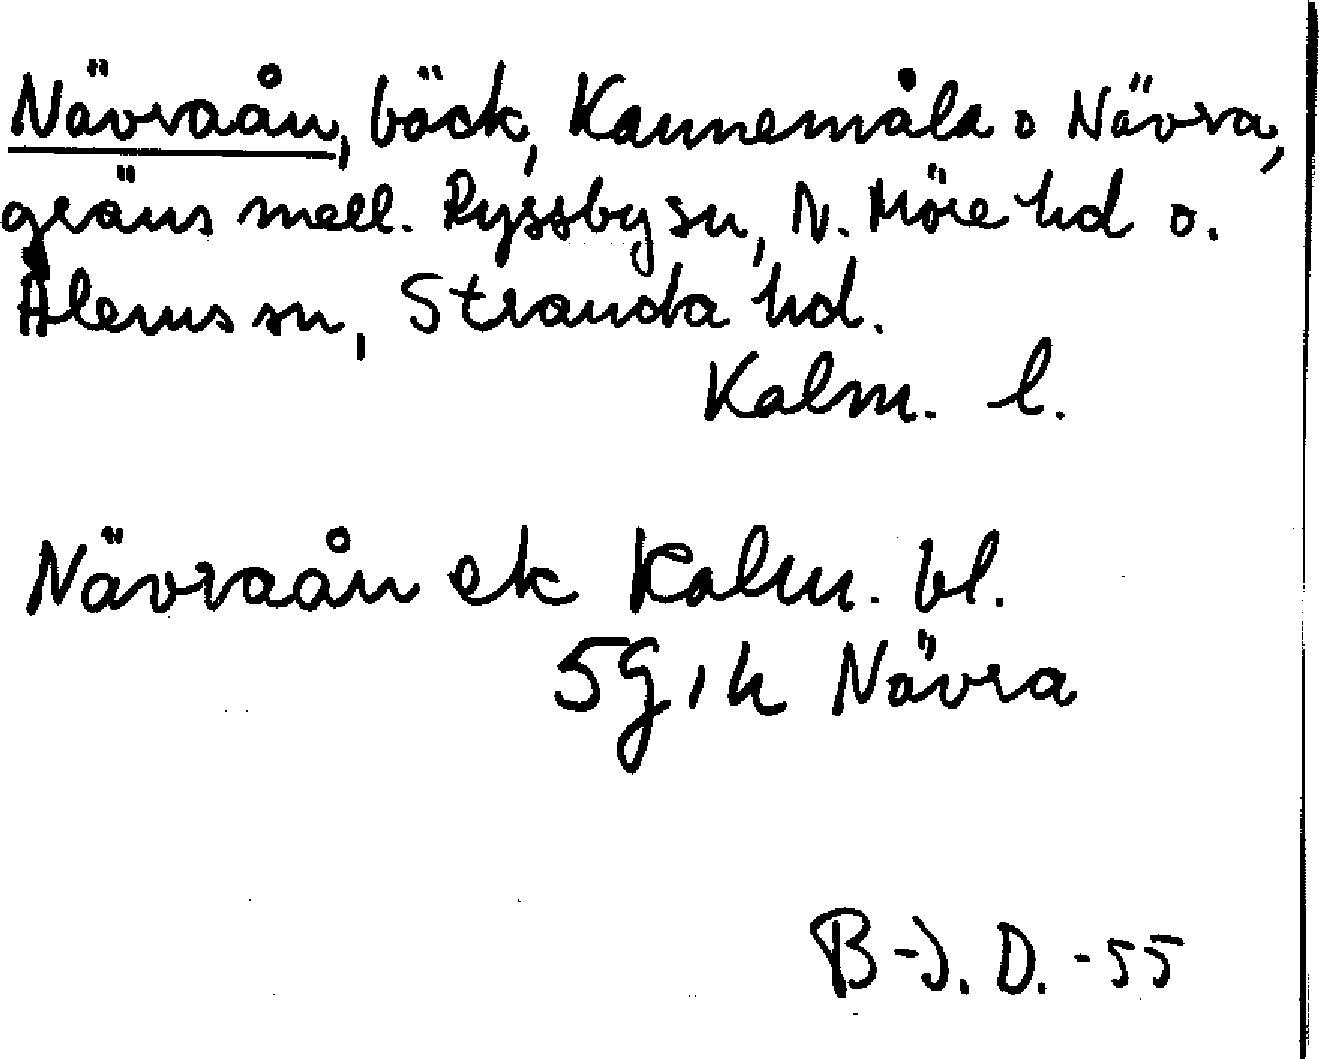 Nävraån, bäck, Kannemåla o Nävra,
gräns mell. Ryssby sn, N. Möre hd o.
Ålems sn, Stranda hd.
Kalm. l.
Nävraån ek Kalm. bl.
5G, h Nävra
B-J. D. -55